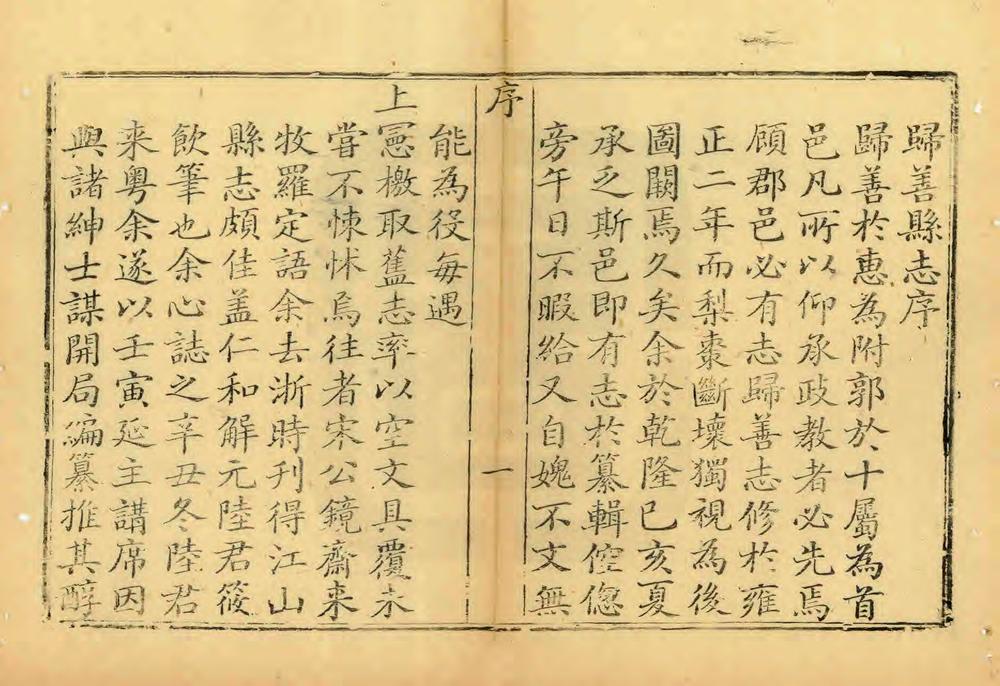 歸善縣志序
歸善於惠為附郭於十屬為首
邑凡所以仰承政教者必先焉
顧郡邑必有志歸善志修於雍
正二年而梨棗斷壞獨視為後
圖闕焉久矣余於乾隆己亥夏
承乏斯邑即有志於纂輯倥傯
旁午日不暇給又自媿不文無
序
一
能為役每遇
上憲檄取舊志率以空文具覆未
嘗不悚怵焉往者宋公鏡齋来
牧羅定語余去浙時刊得江山
縣志頗佳盖仁和解元陸君筱
飲筆也余心誌之辛丑冬陸君
来粤余遂以壬寅延主講席因
與諸紳士謀開局編纂推其醇